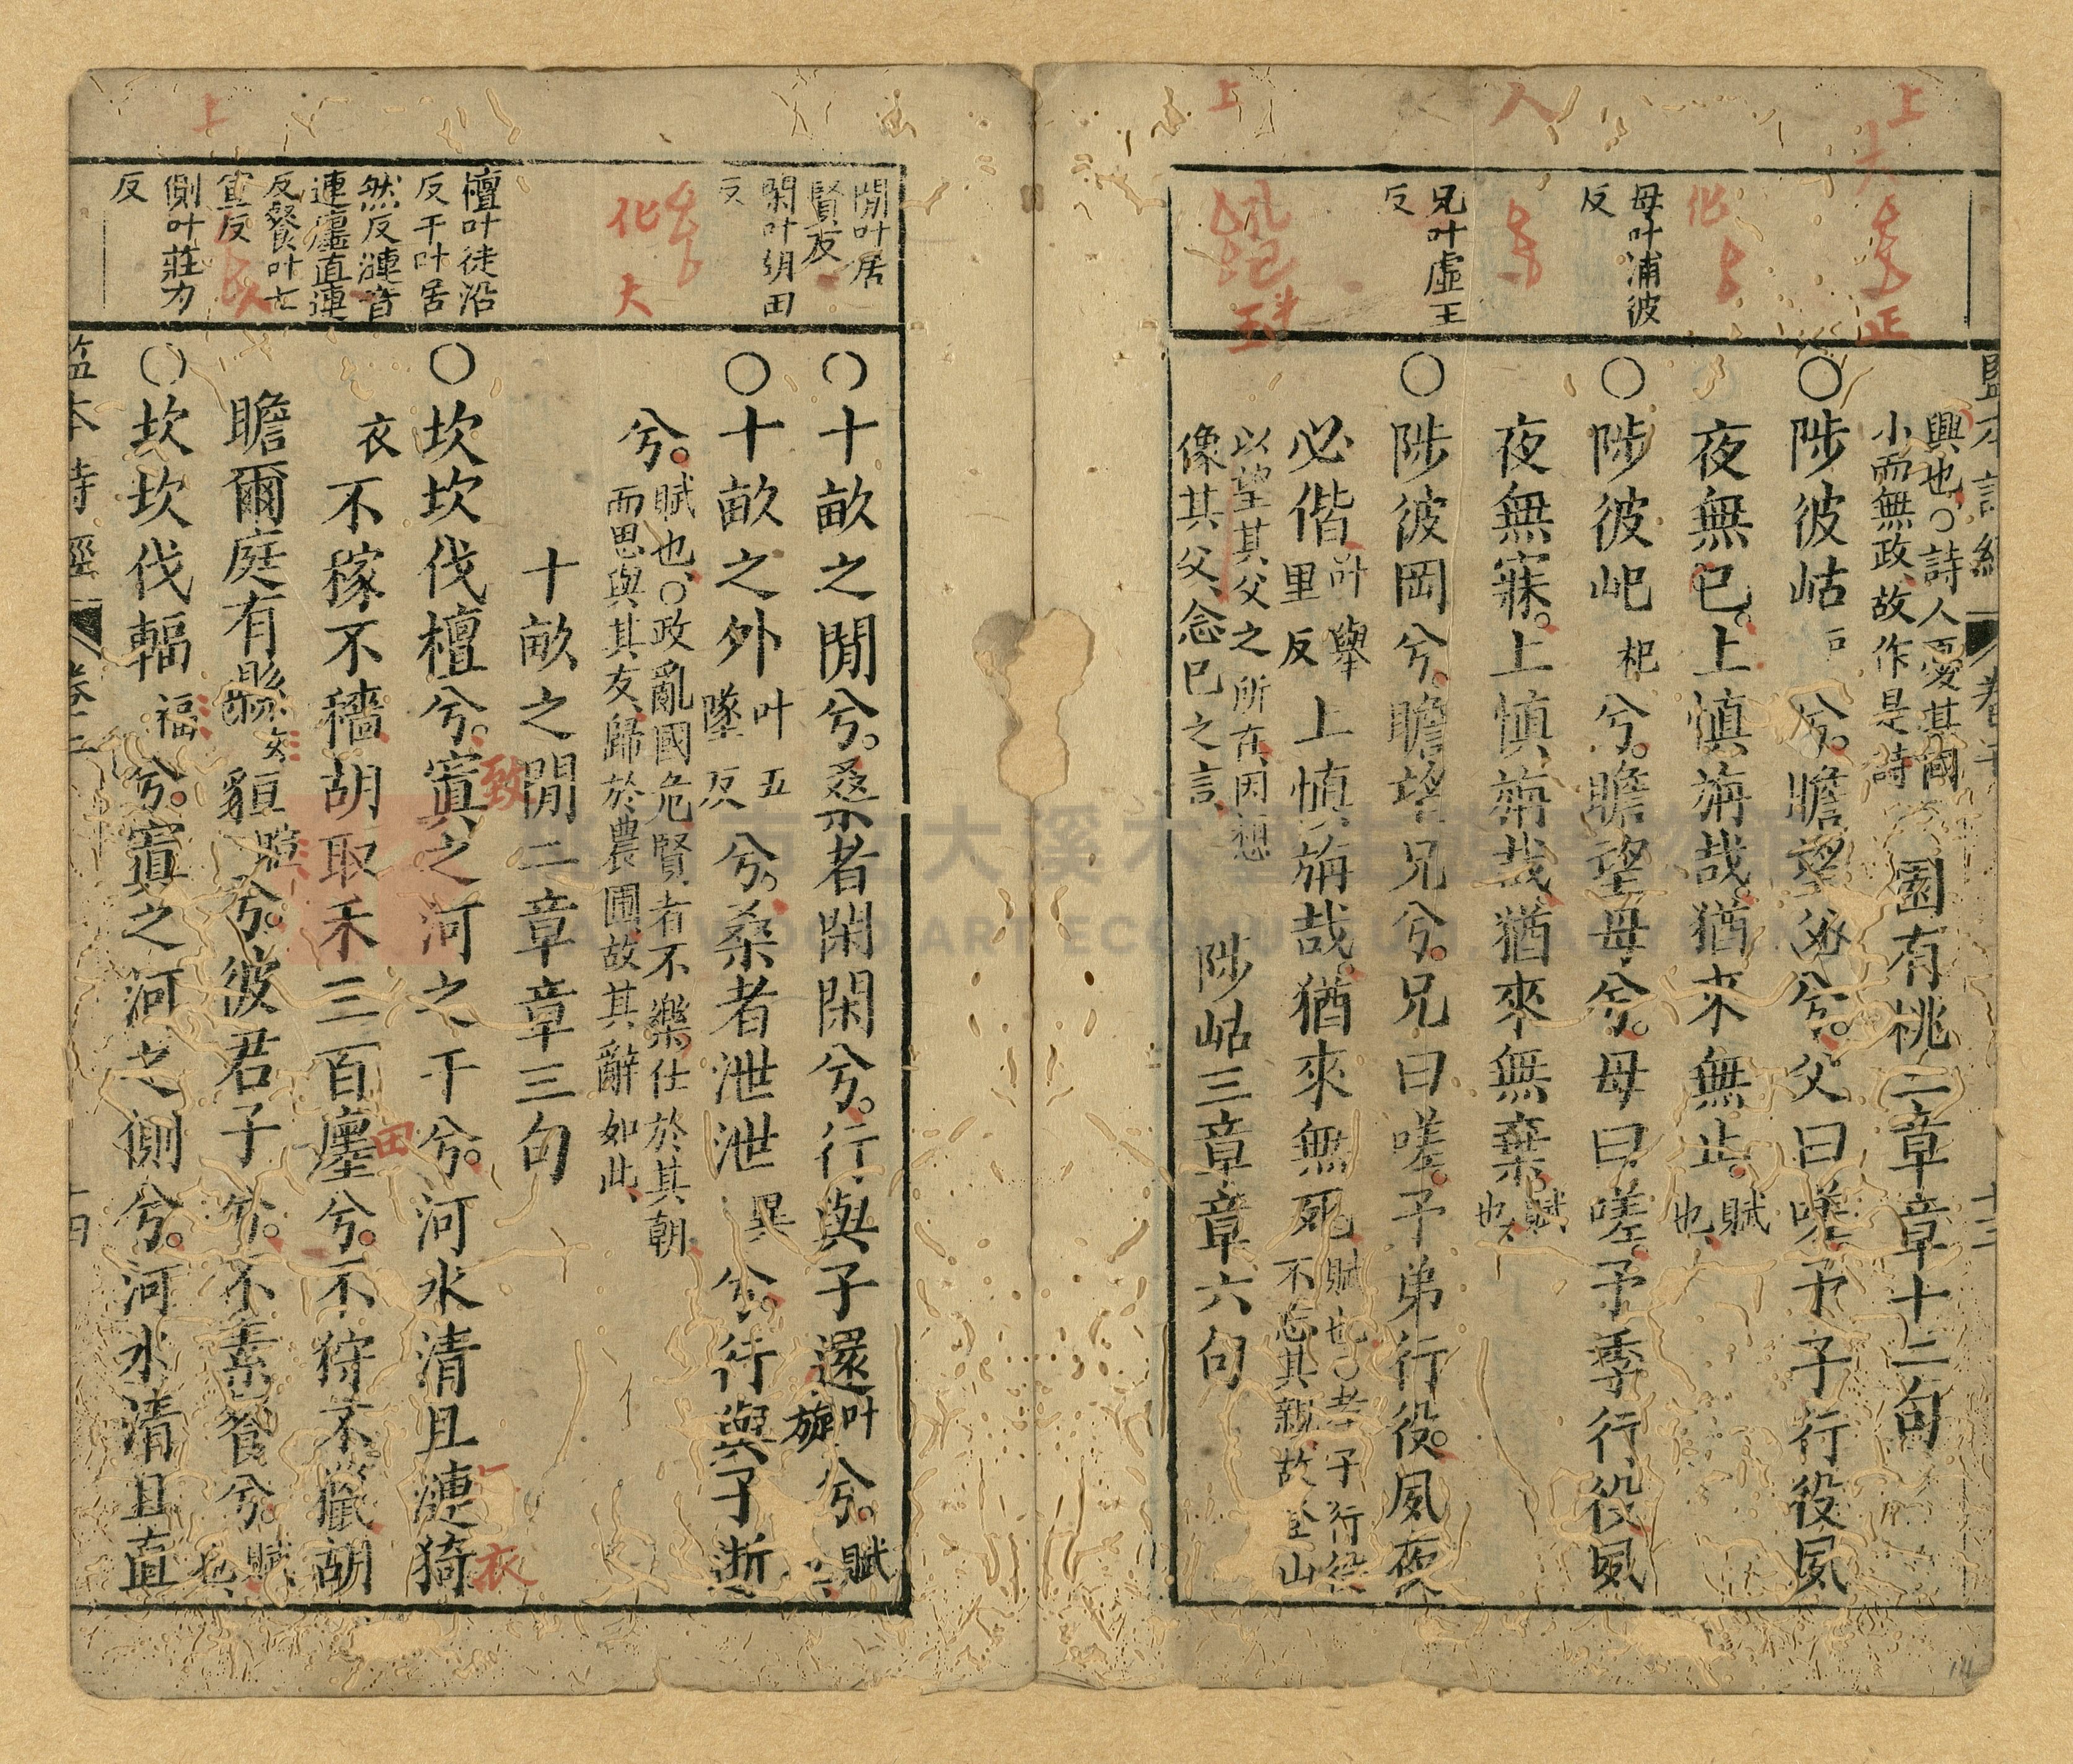 監本詩經 卷二 十三
興也○詩人憂其國
小而無政故作是詩
園有桃二章章十二句
○陟彼岵戶兮。瞻望父兮。父曰嗟予子行役夙
夜無已。上慎旃哉。猶來無止。賦也
○陟彼屺杞兮。瞻望母兮。母曰嗟予季行役夙
夜無寐。上慎旃哉猶來無棄賦也
○陟彼岡兮。瞻望兄兮。兄曰嗟。予弟行役。夙夜
必偕叶舉里反上慎旃哉。猶來無死賦也○孝子行役不忘其親故登山
以望其父之所在因想
像其父念已之言
陟岵三章章六句
母叶浦彼
反
兄叶虛王
反
上
大
正
化
人
上
玉
○十畝之閒兮。桑者閑閑兮。行與子還叶旋兮。賦也
○十畝之外叶五墜反兮。桑者泄泄異兮。行與子逝
兮。賦也○政亂國危賢者不樂仕於其朝
而思與其友歸於農圃故其辭如此
十畝之閒二章章三句
○坎坎伐檀兮。寘之河之干兮。河水清且漣猗
衣不稼不穡胡取禾三百廛兮。不狩不獵胡
瞻爾庭有縣玄貆暄兮。彼君子兮。不素餐兮。賦也
○坎坎伐輻福兮。寘之河之側兮。河水清且直
監本詩經 卷二
閒叶居
賢反
閑叶胡田
反
檀叶徒沿
反干叶居
然反漣音
連廛直連
反餐叶七
宣反
側叶莊力
反
化
大
上
致
田
衣